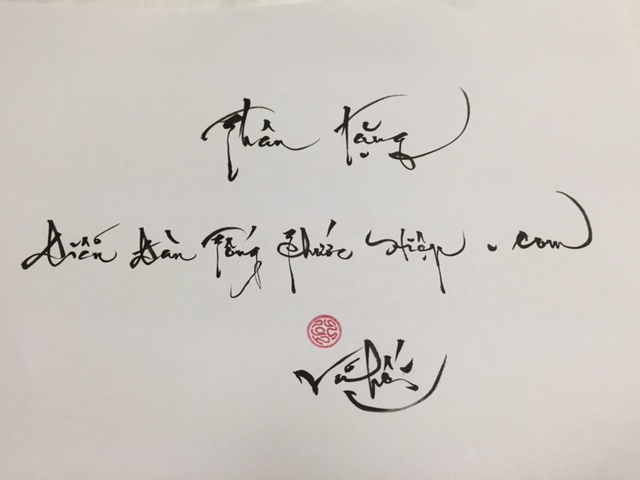 Thân tặng
Diễn Đàn Tống Phước Hiệp . com